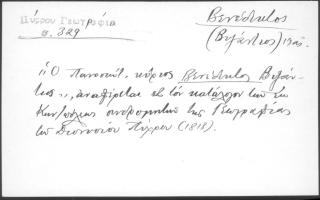 Πύρρου Γεωγραφία
σ. 329
Βενέδικτος
(Βυζάντιος)
"Ὁ Πανοσιώτ. κύριος Βενέδικτος Βυζάν-
τιος", ἀναφέρεται εἰς τόν κατάλογον τῶν ἐν
Κων)πόλει συνδρομητῶν τῆς Γεωγραφίας
τοῦ Διονυσίου Πύρρου (1818).